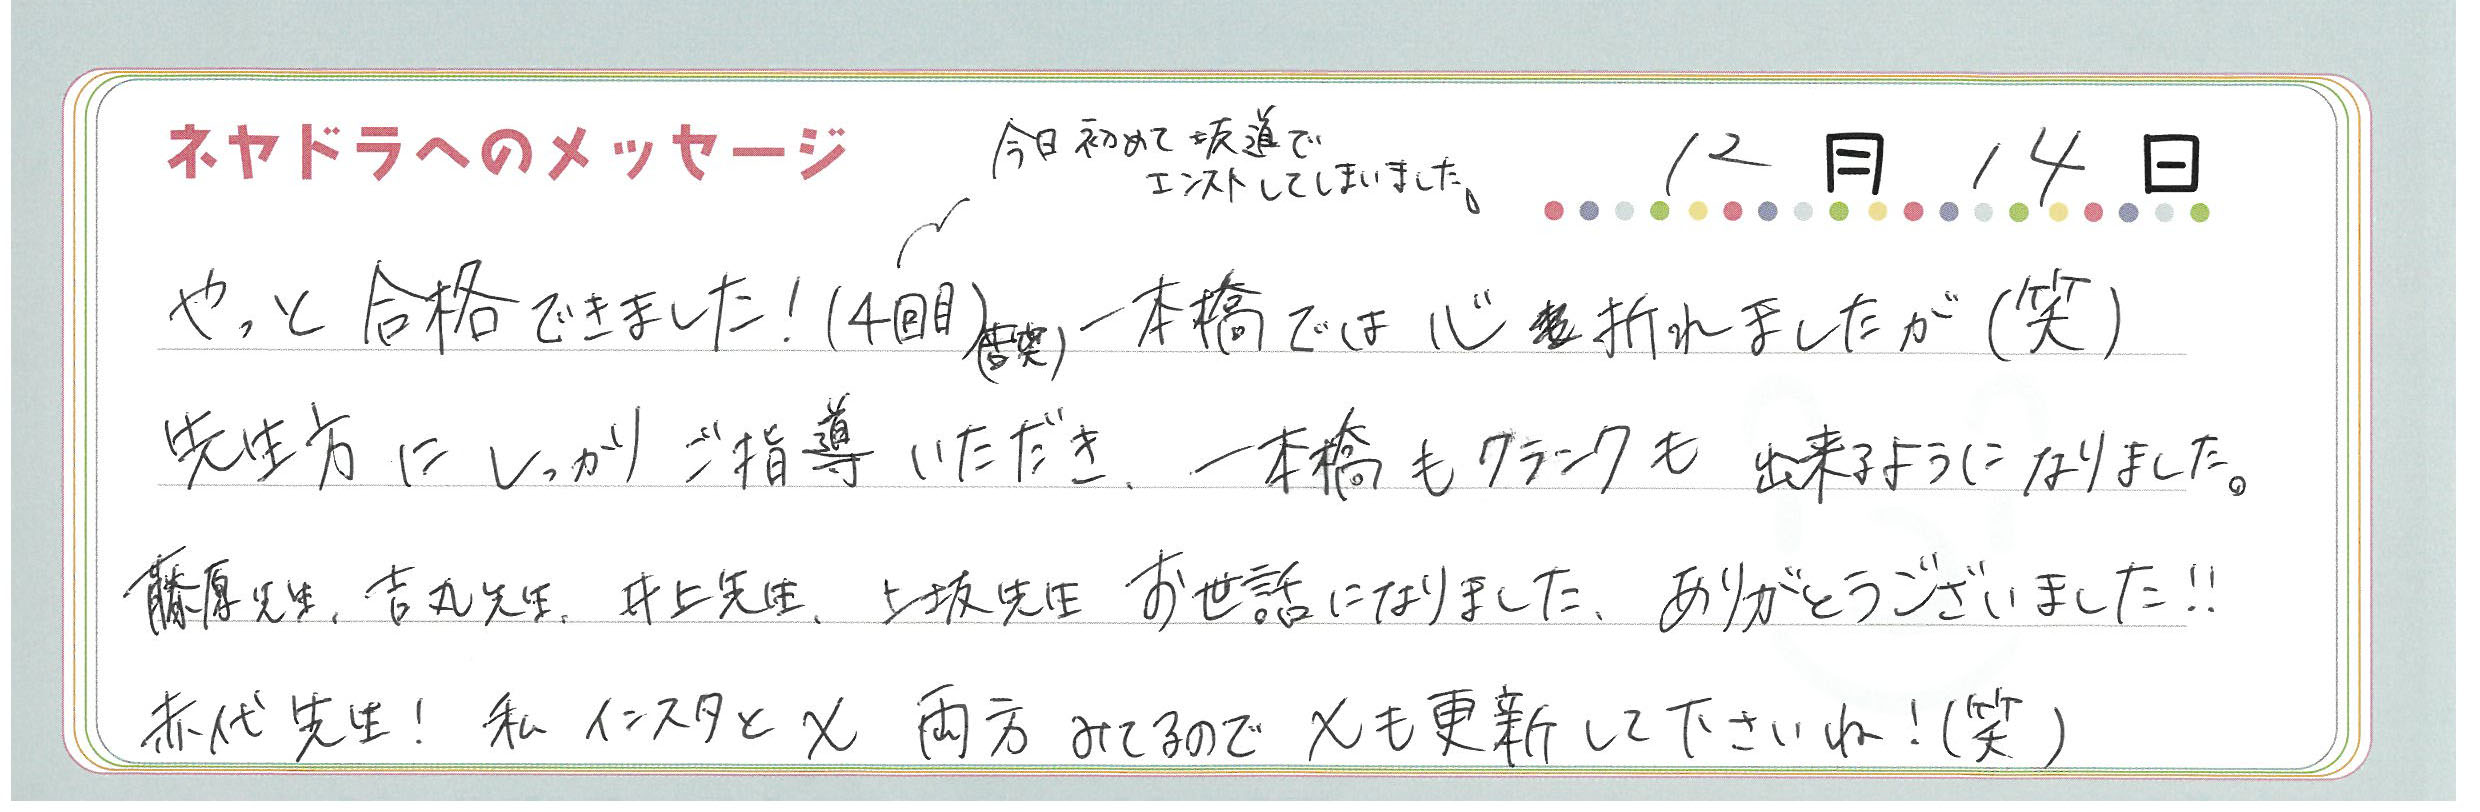 ネヤドラへのメッセージ
今日初めて坂道で
エンストしてしまいました。
12月14日
やっと合格できました!(4回目)(苦笑)一本橋では心折れましたが(笑)
先生方にしっかりご指導いただき、一本橋もクランクも出来るようになりました。
藤原先生、吉丸先生、井上先生、上坂先生お世話になりました、ありがとうございました!!
赤代先生!私インスタとX両方みてるのでXも更新して下さいね!(笑)